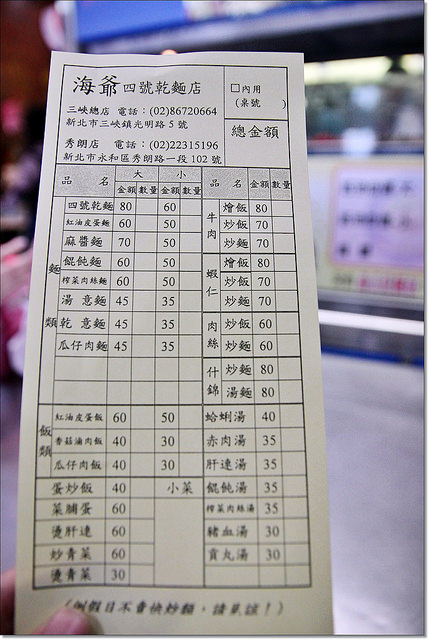 海爺四號乾麵店
三峽總店 電話：(02)86720664
新北市三峽鎮光明路5號
秀朗店 電話：(02)22315196
新北市永和區秀朗路一段102號
□內用
(桌號 )
總金額
品 名 大 小
金額 數量 金額 數量
麵類
四號乾麵 80 60
紅油皮蛋麵 60 50
麻醬麵 70 50
餛飩麵 60 50
榨菜肉絲麵 60 50
湯意麵 45 35
乾意麵 45 35
瓜仔肉麵 45 35
飯類
紅油皮蛋飯 60 50
香菇滷肉飯 40 30
瓜仔肉飯 40 30
蛋炒飯 40 小菜
菜脯蛋 60
燙肝連 60
炒青菜 60
燙青菜 30
品 名 金額 數量
牛肉
燴飯 80
炒飯 70
炒麵 70
蝦仁
燴飯 80
炒飯 70
炒麵 70
肉絲
炒飯 60
炒麵 60
什錦
炒麵 80
湯麵 80
蛤蜊湯 40
赤肉湯 35
肝連湯 35
餛飩湯 35
榨菜肉絲湯 35
豬血湯 30
貢丸湯 30
(例假日不賣快炒類，請見諒！)